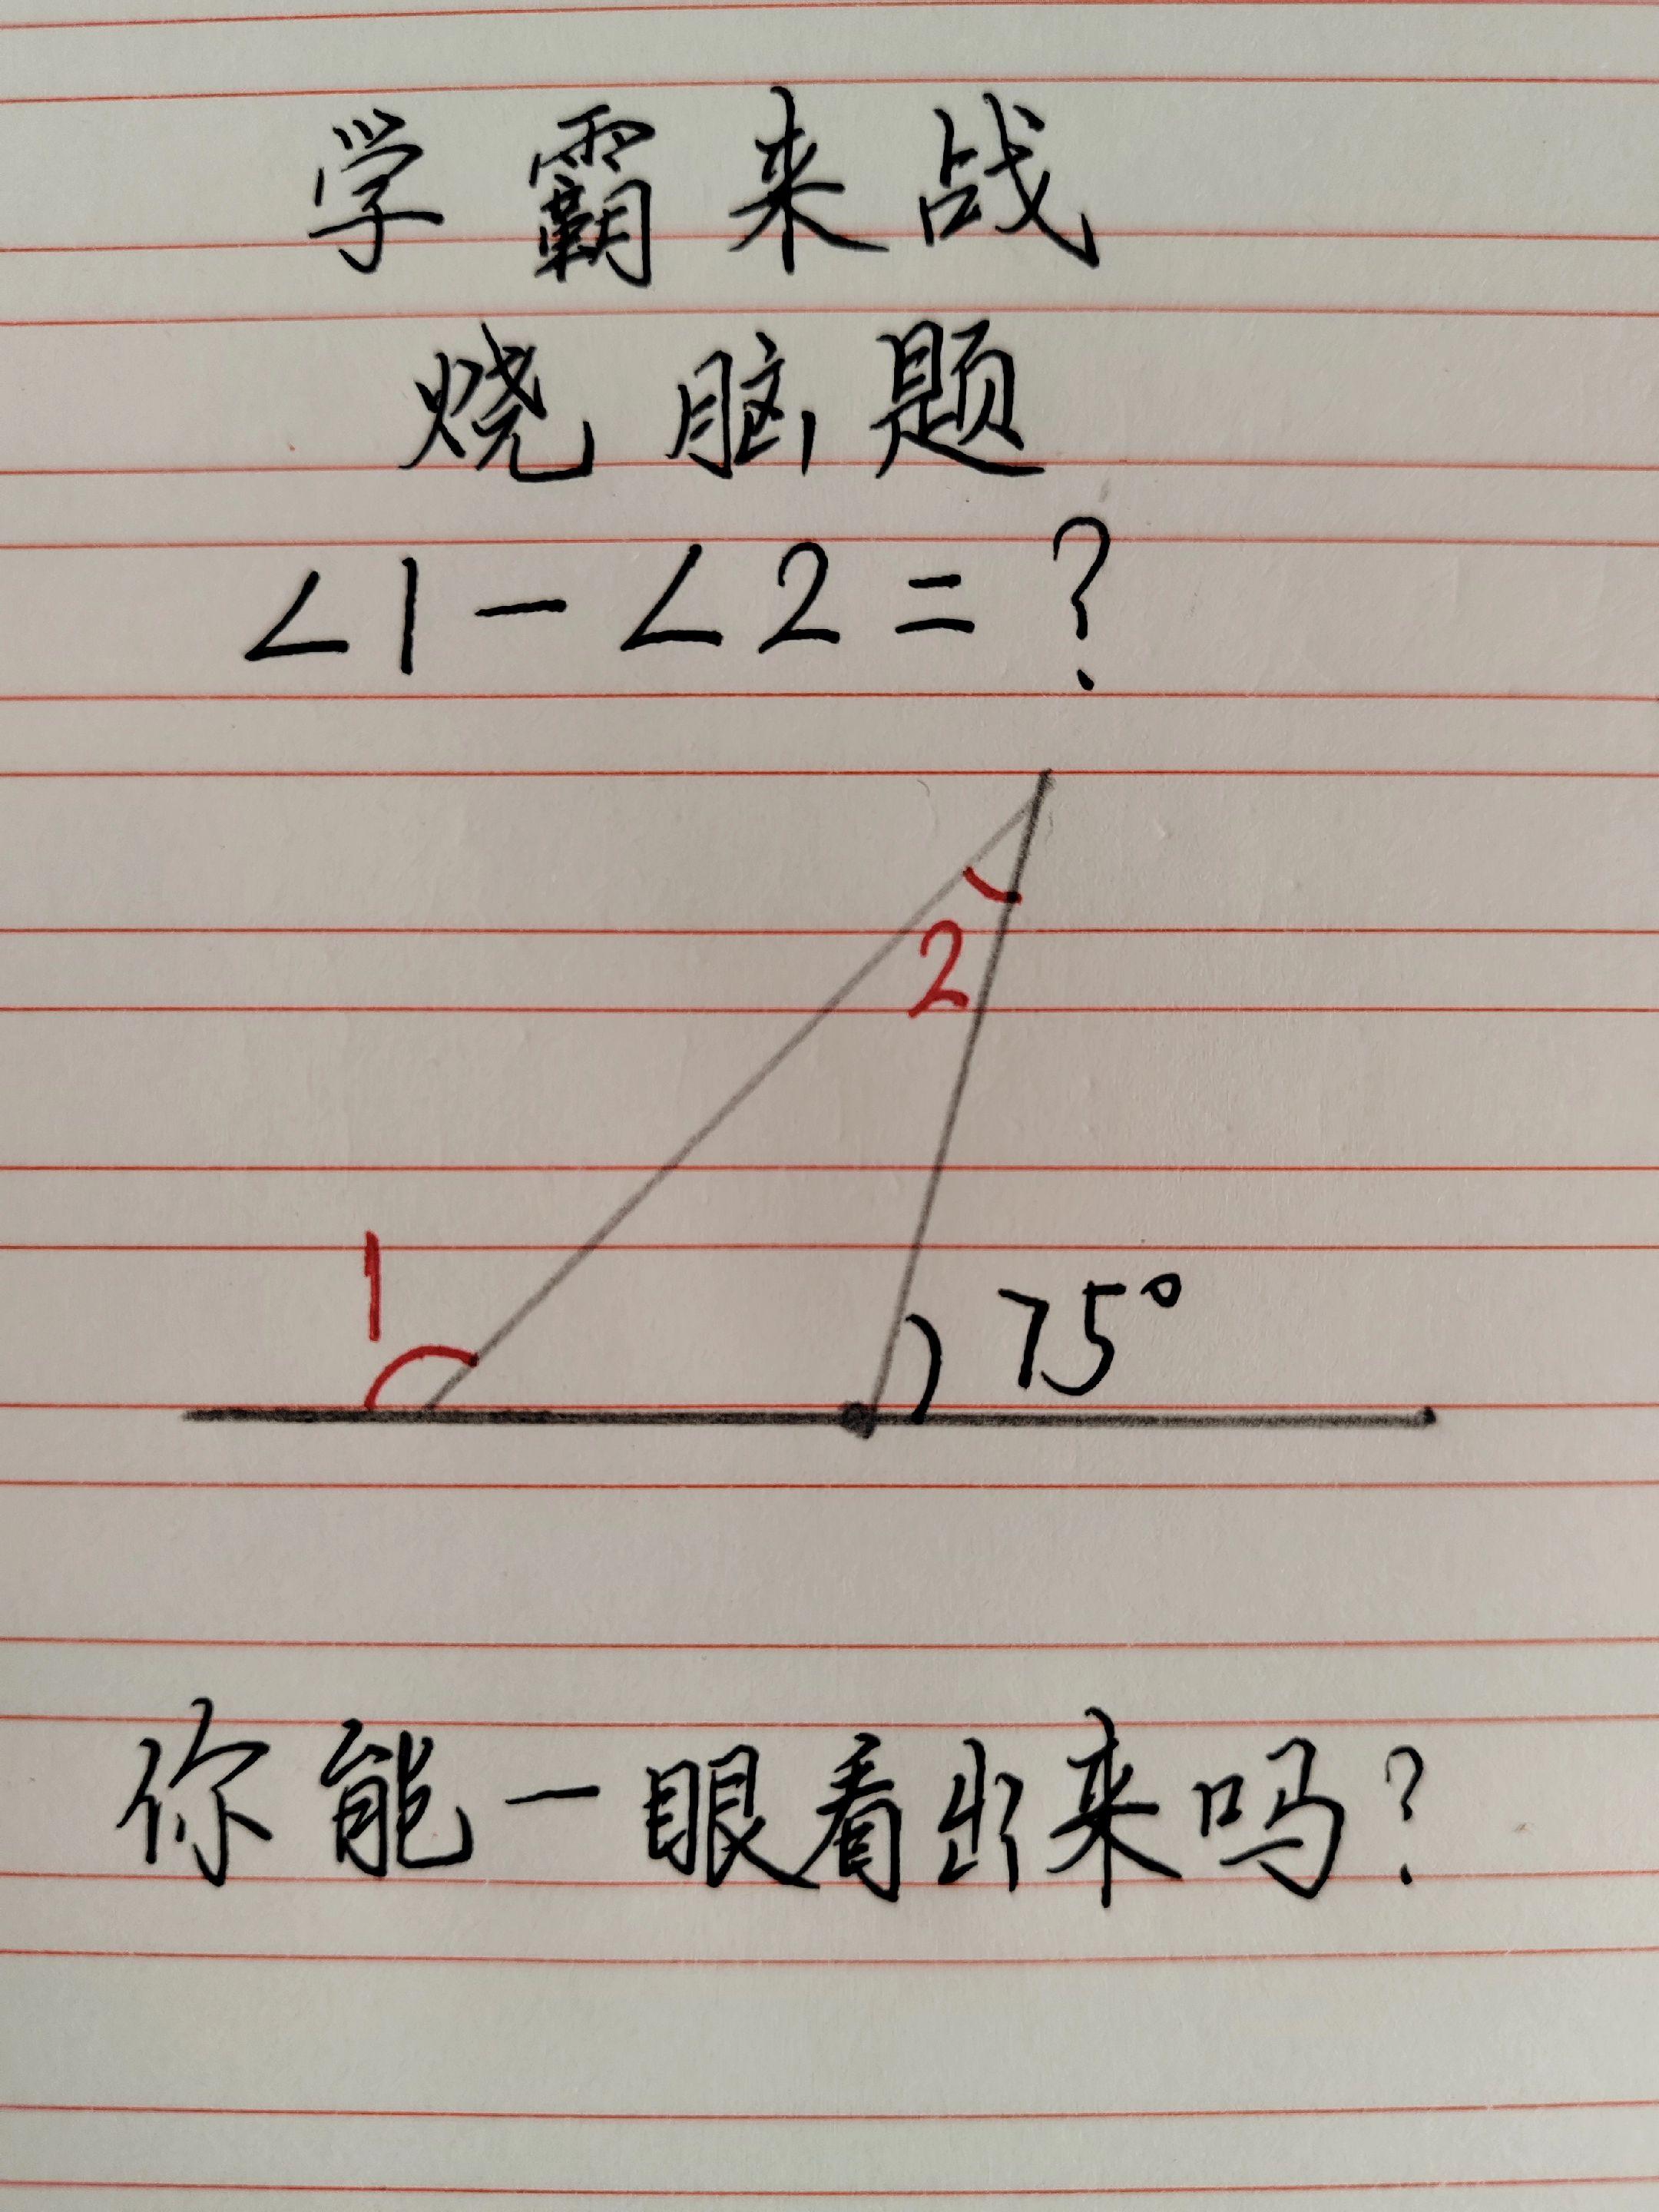 学霸来战
烧脑题
∠1-∠2=?
2
1
75°
你能一眼看出来吗?